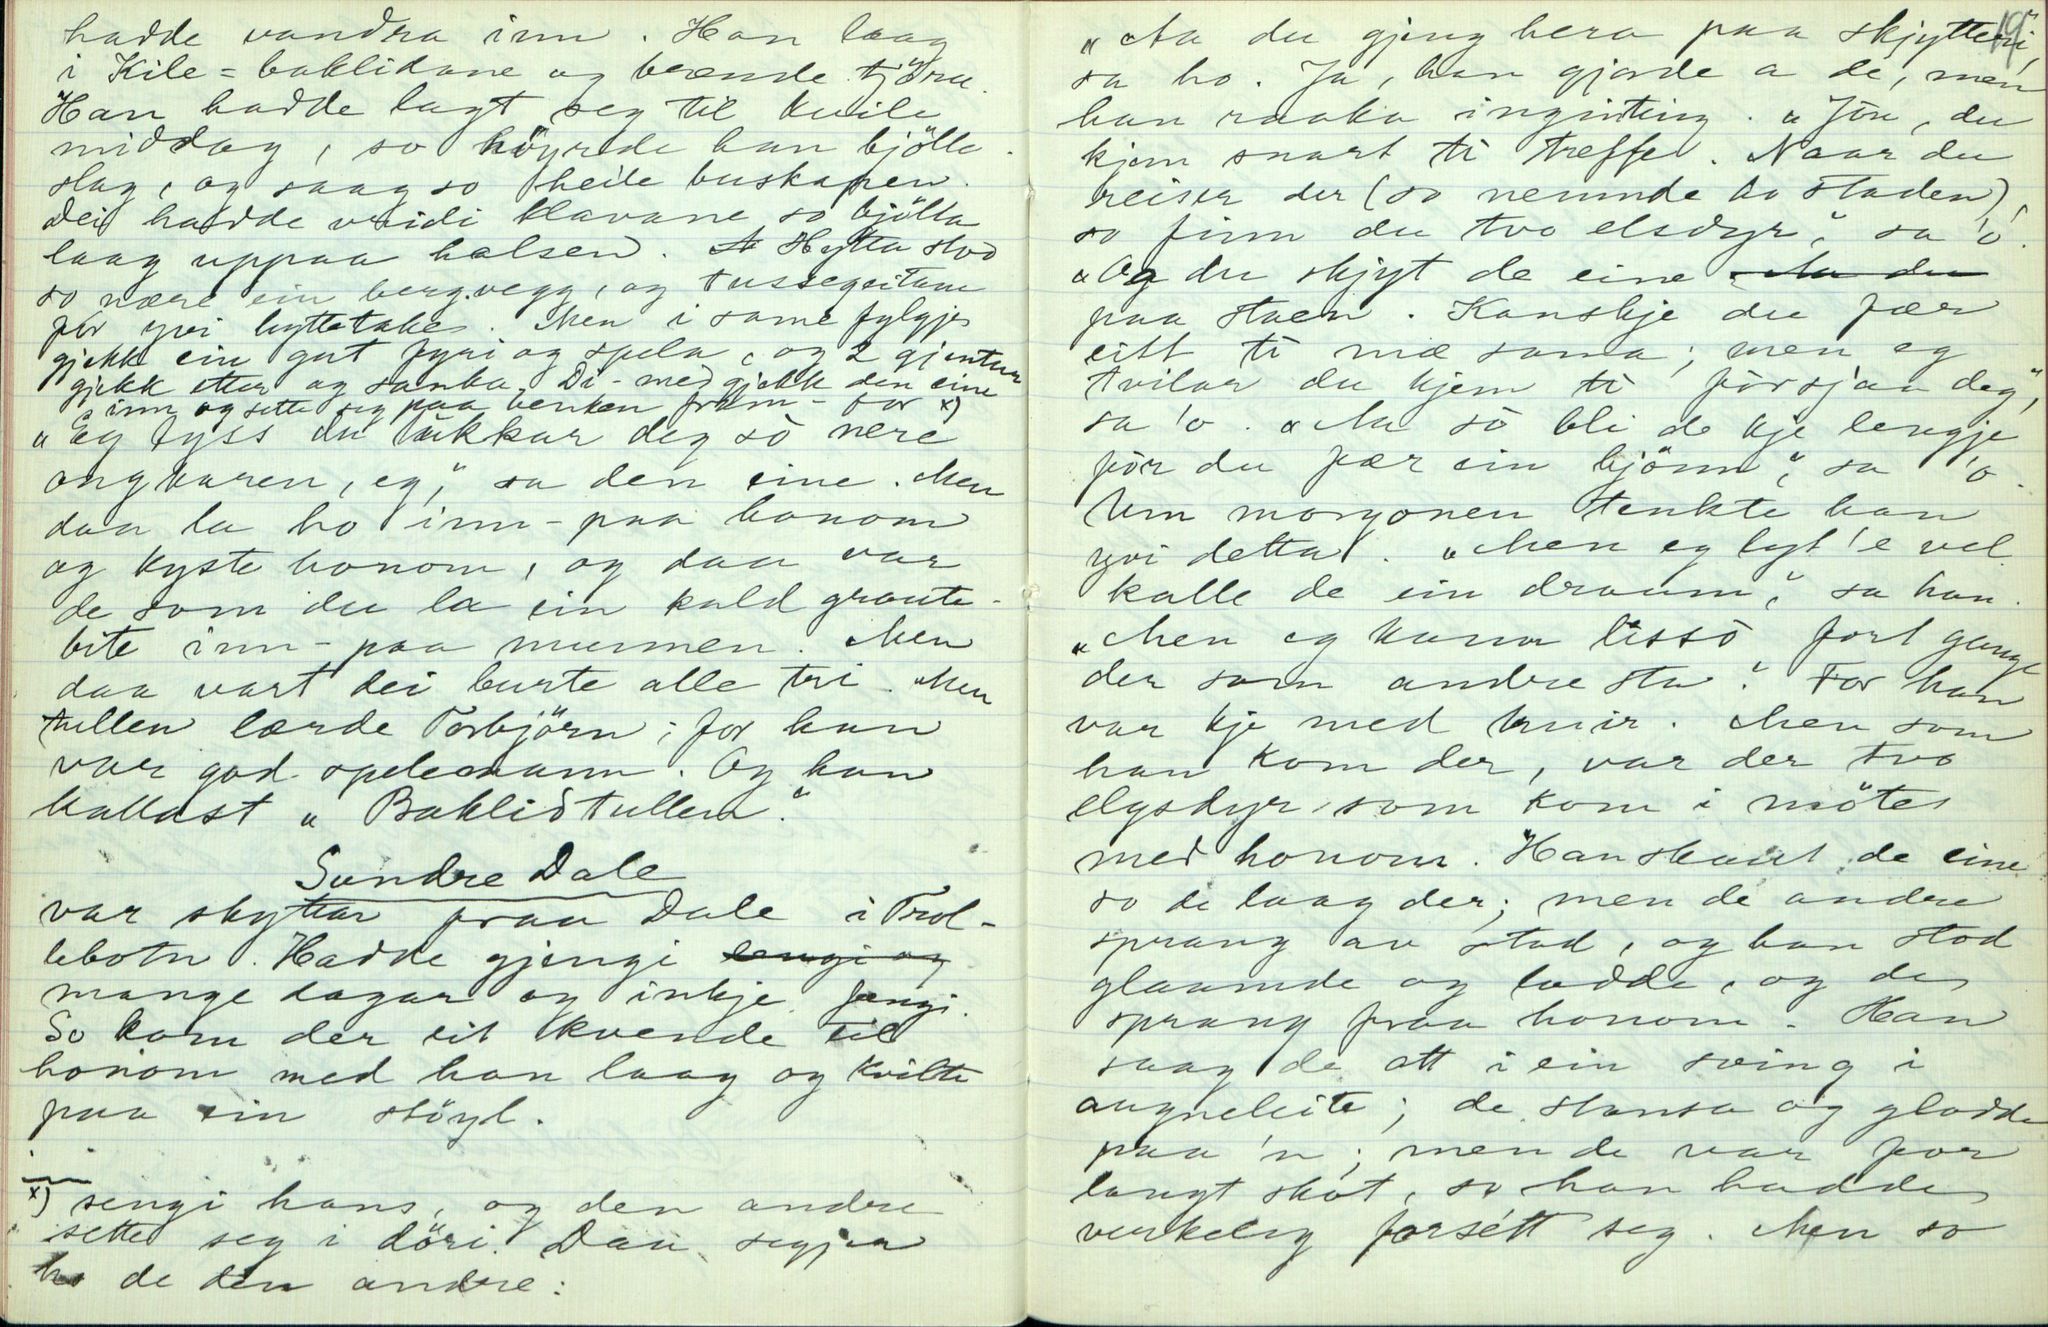 hadde vandra inn. Han laag
i Kile-baklidane og brende tjöru.
Han hadde lagt seg til kvile
middag, so höyrde han bjölle-
slag, og saag so heile buskapen.
Dei hadde vridi klavane so bjölla
laag uppaa halsen. Hytta stod
so nære ein bergvegg, og tussegeitane
för yvi hyttetake. Men i same fylgje
gjekk ein gut fyri og spela, og 2 gjentur
gjekk etter og sanka. Di-med gjekk den eine
inn og sette seg paa benken fram-for x)
"Eg tyss du lukkar deg sò nere
ongkaren, eg," sa den eine. Men
daa la ho inn-paa honom
og kyste honom, og daa var
de som du la ein kald graute-
bite inn-paa munnen. Men
daa vart dei burte alle tri. Men
tullen lærde Torbjörn; for han
var god spelemann. Og han
kallast "Baklidtullen".
Sundre Dale
var skyttar fraa Dale i Trol-
lebotn. Hadde gjengi lengi og
mange dagar og inkje fengi.
So kom der eit kvende til
honom med han laag og kvilte
paa ein stöyl.
x) sengi hans, og den andre
sette seg i döri. Daa segjer
ho de den andre:
19
"Aa du gjeng hera paa skjytteri,"
sa ho. Ja, han gjorde a de, men
han raaka ingenting. "Jöu, du
kjem snart ti treffe. Naar du
reiser der (so nemnde ho staden),
so finn du tvo elsdyr," sa 'o.
"Og du skjyt de eine Aa du
paa staen. Kanskje du fær
eitt ti mæ sama; men eg
tvilar du kjem ti försjaa deg",
sa 'o. "Aa sò bli de kje lengje
för du fær ein bjönn", sa 'o.
Um morgonen tenkte han
yvi detta. "Men eg lyt 'e vel
kalle de ein draum," sa han.
"Men eg kann lissò fort gange
der som andre sta". For han
var kje med kuir. Men som
han kom der, var der tvo
elgsdyr som kom i möte
med honom. Han skaut de eine
so de laag der; men de andre
sprang av stad, og han stod
glaamde og ladde, og de
sprang fraa honom. Han
saag de att i ein sving i
augneleite; de stansa og glodde
paa 'n; men de var for
langt skot, so han hadde
verkeleg forsétt seg. Men so